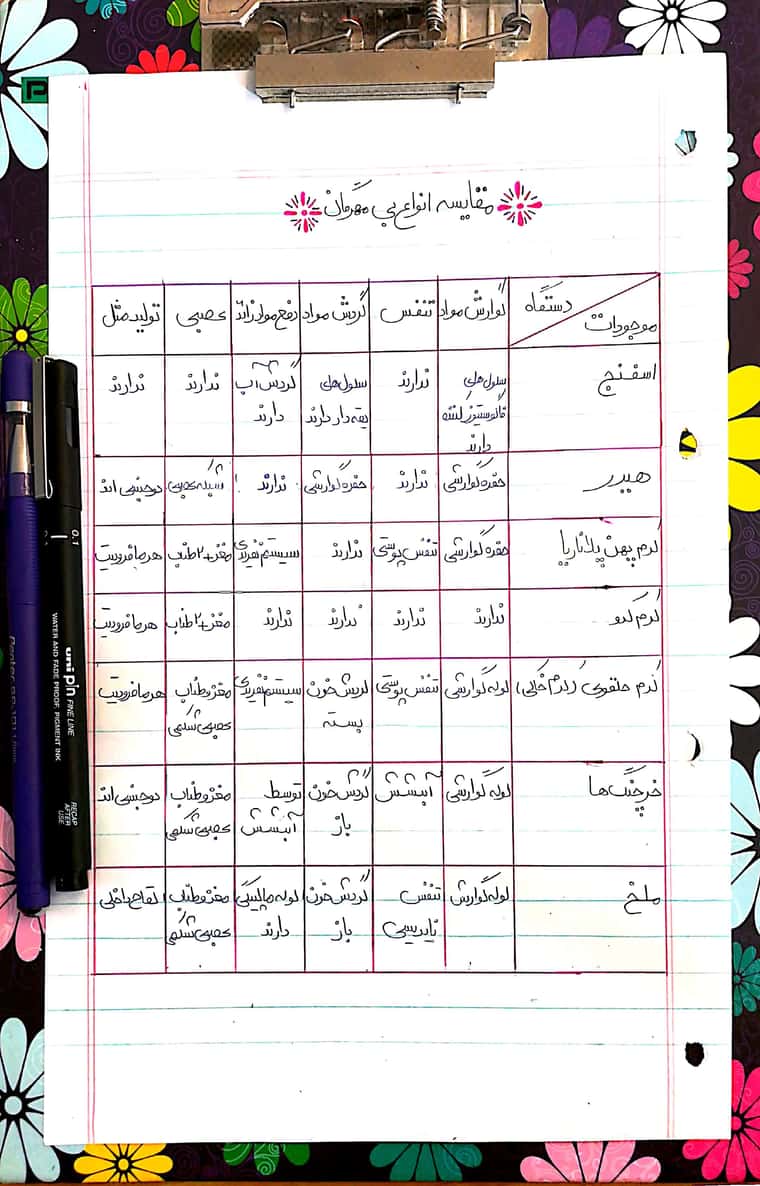 مقایسه انواع بی مهرگان
دستگاه
موجودات
گوارش مواد
تنفس
گردش مواد
دفع مواد زائد
عصبی
تولید مثل
اسفنج
سلول های
دارند
ندارند
سلول های
یقه دار دارند
گردش آب
دارند
ندارند
ندارند
هیدر
حفره گوارشی
ندارند
حفره گوارشی
ندارند
شبکه عصبی
دوجنسی اند
کرم پهن پلاناریا
حفره گوارشی
تنفس پوستی
ندارند
سیستم نفریدی
مغز + ۲ طناب
هرمافرودیت
کرم کدو
ندارند
ندارند
ندارند
ندارند
مغز + ۲ طناب
هرمافرودیت
کرم حلقوی (کرم خاکی)
لوله گوارشی
تنفس پوستی
گردش خون
بسته
سیستم نفریدی
مغز و طناب
عصبی شکمی
هرمافرودیت
خرچنگ ها
لوله گوارشی
آبشش
گردش خون
باز
توسط
آبشش
مغز و طناب
عصبی شکمی
دوجنسی اند
ملخ
لوله گوارش
تنفس
نایدیسی
گردش خون
باز
لوله مالپیگی
دارند
مغز و طناب
عصبی شکمی
لقاح داخلی
0.1
uni pin FINE LINE
WATER AND FADE PROOF, PIGMENT INK
RECAP
AFTER
USE